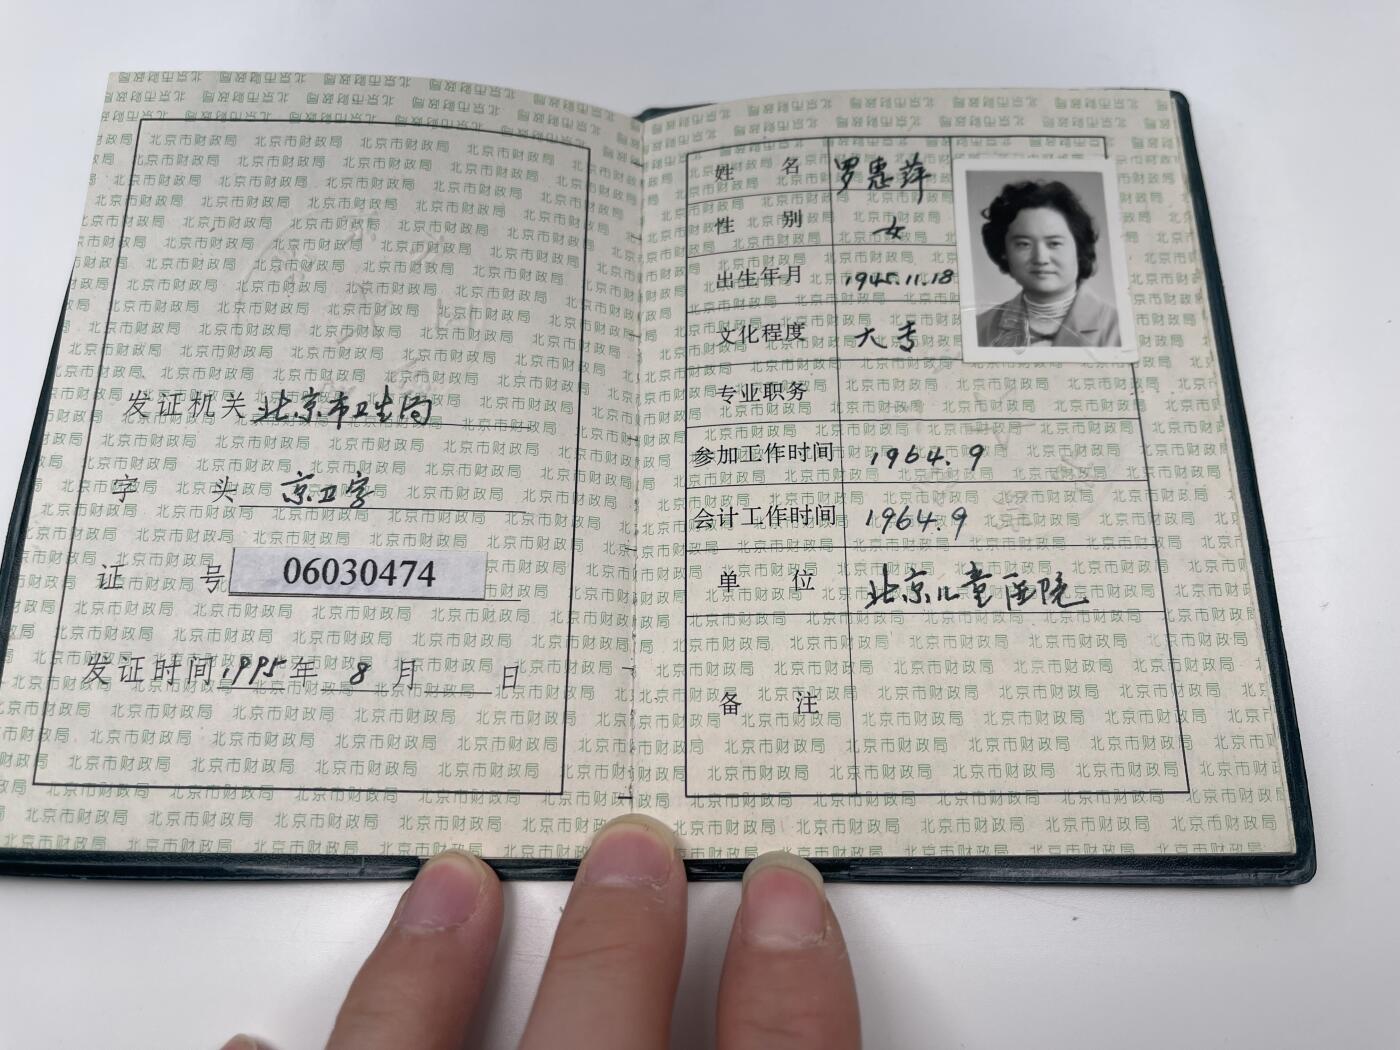 发证机关 北京市卫生局
字 头 京卫字
证 号 06030474
发证时间 1995年 8 月 日
姓 名 罗惠萍
性 别 女
出生年月 1945.11.18
文化程度 大专
专业职务
参加工作时间 1964.9
会计工作时间 1964.9
单 位 北京儿童医院
备 注
北京市财政局